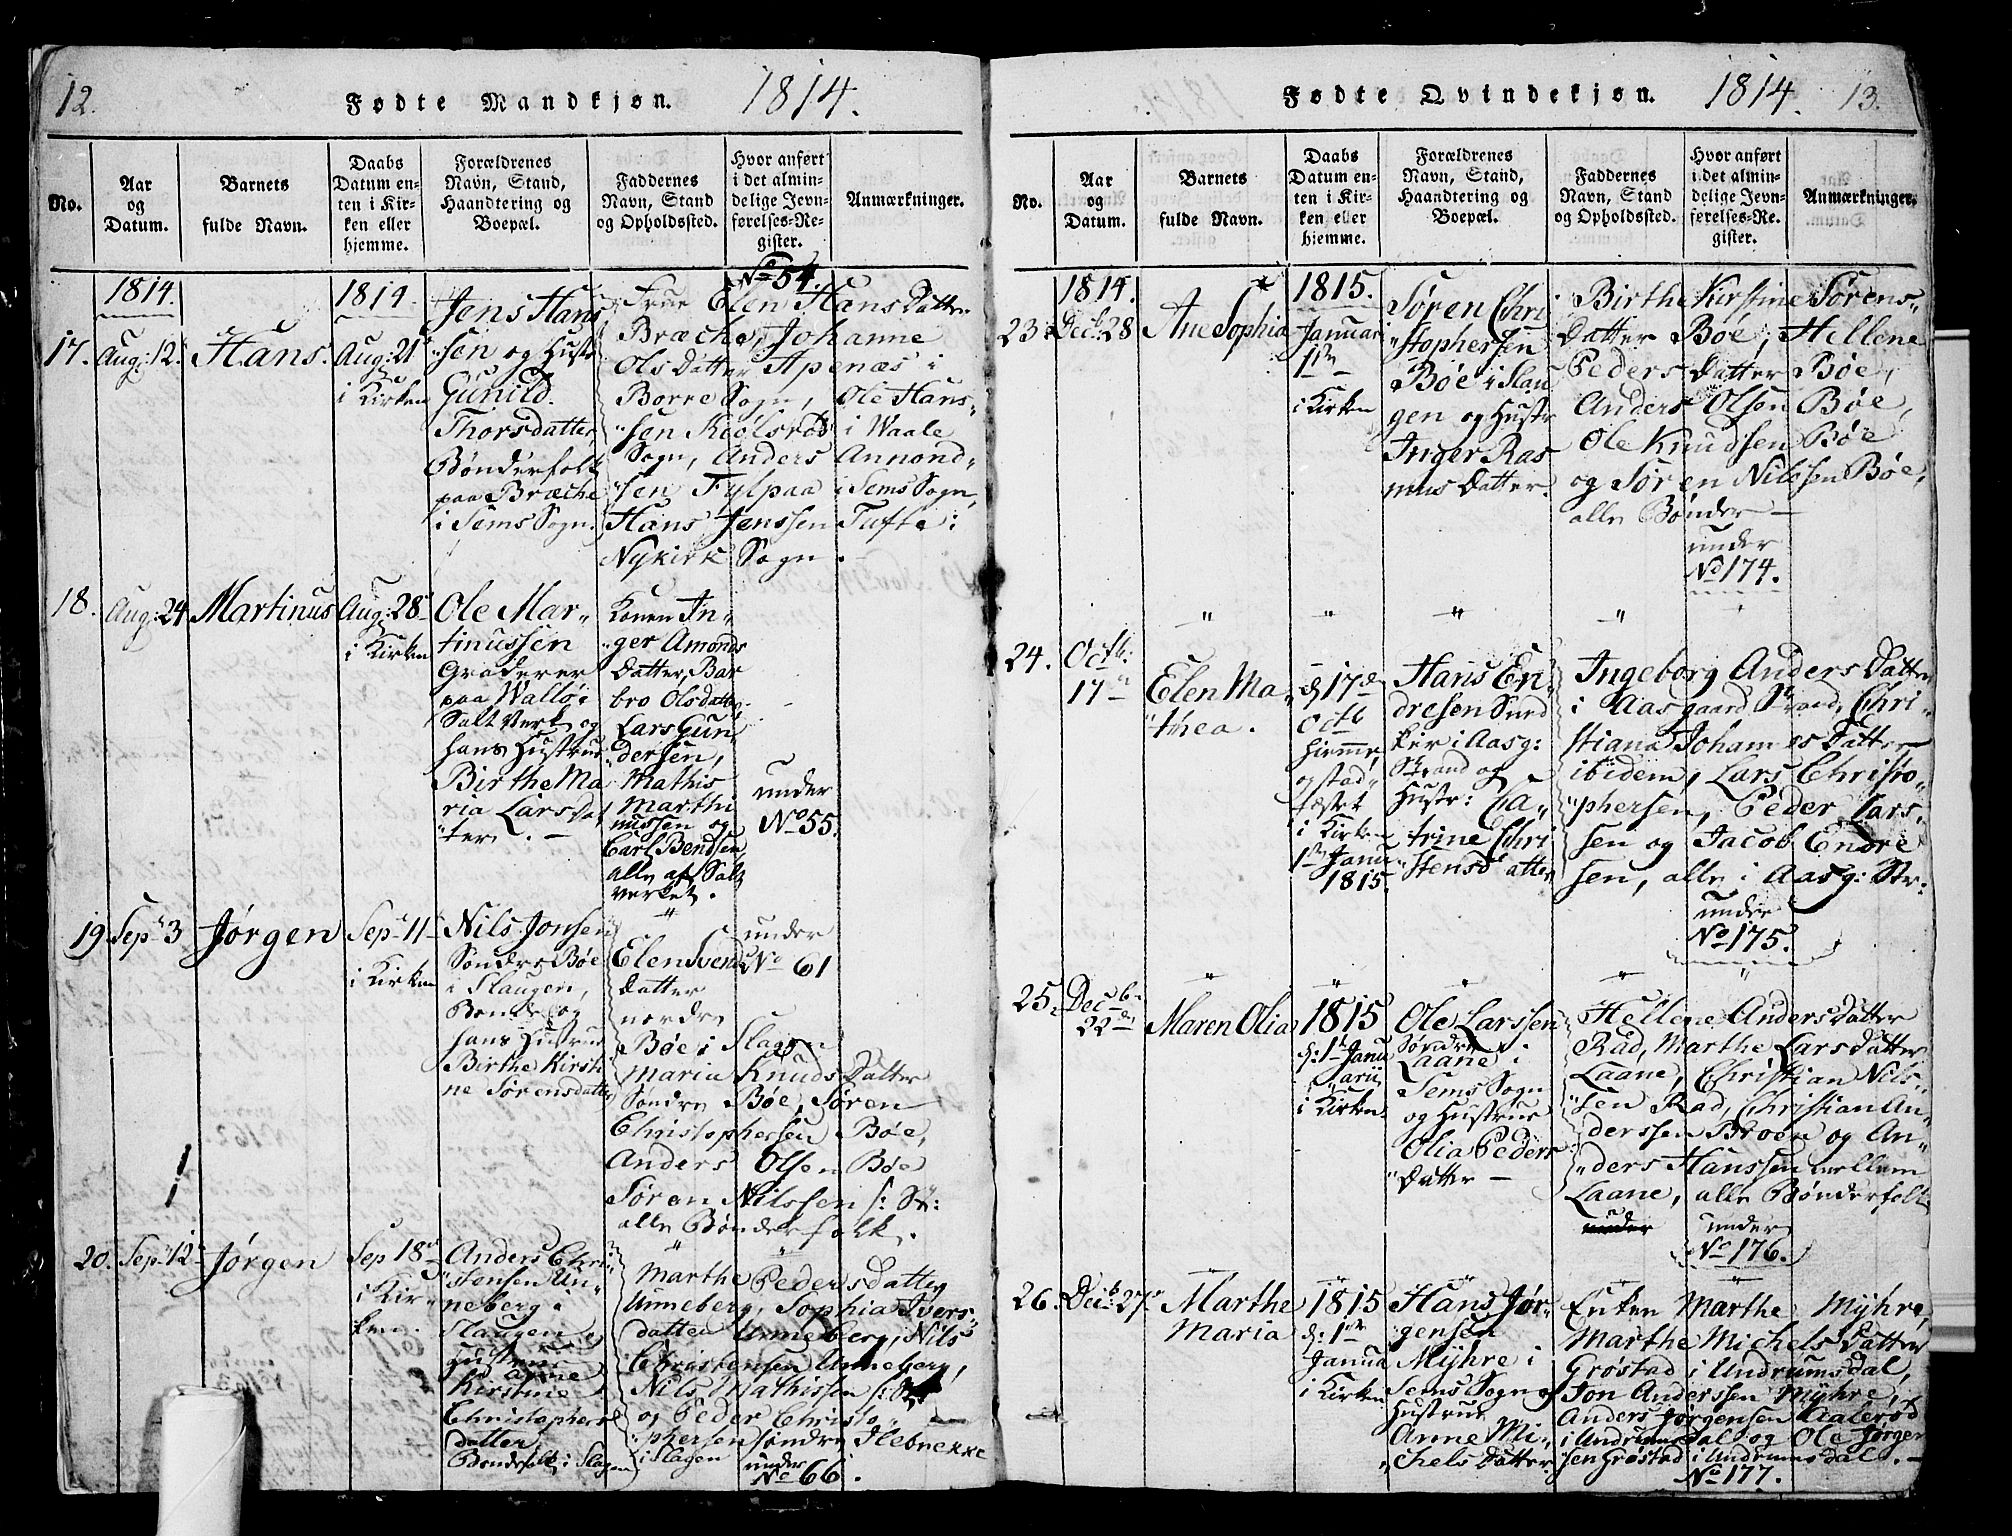 12.
Fødte Mandkjøn. 1814.
No.
Aar
og
Datum.
Barnets
fulde Navn.
Daabs
Datum en-
ten i Kir-
ken eller
hjemme.
Forældrenes
Navn, Stand,
Haandtering og
Boepæl.
Faddernes
Navn, Stand
og Opholdssted.
Hvor anført
i det almin-
delige Jevn-
førelses-Re-
gister.
Anmærkninger.
1814.
17. Aug: 12.
Hans.
1814.
Aug: 21
i Kirken
Jens Hans
"sen og Hustr
Gunild
Thorsdatter,
Bønderfolk
paa Bræche
i Sems Sogn.
No 54.
Frue Elen Hans Datter
Bræche, Johanne
Ols Datter Apenæs i
Borre Sogn, Ole Hans-
"sen Kiölsröd i Waale
Sogn, Anders Annond-
"sen Fylpaa i Sems Sogn,
Hans Jenssen Tufte i
Nykirk Sogn.
18. Aug: 24
Martinus
Aug: 28
i Kirken
Ole Mar-
tinussen
Graderer
paa Walløe
Salt Verk og
hans Hustrue
Birthe Ma
ria Larsdat
"ter. -
Konen In-
"ger Amonds
Datter, Bar
bro Olsdatter,
Lars Gun
dersen,
Mathis
Marthi
nussen og
Carl Bendsen
alle af Salt
verket.
under
No 55.
19. Sept 3
Jørgen
Sept 11
i Kirken
Nils Jonsen
Søndre Bøe
i Slaugen,
Bonde og
hans Hustrue
Birthe Kirsti
ne Sørensdatter
under
No 61
Elen Svends
Datter
nordre
Bøe i Slagen
Maria Knuds Datter
Søndre Bøe, Søren
Christophersen Bøe,
Anders Olsen Bøe
Søren Nilssen
alle Bønderfolk.
20. Sept 12
Jørgen
Sep 18
i Kir-
ken.
Anders Chri
"stensen Un-
neberg i
Slaugen og
Hustrue
Anne
Kirstine
Christophers
datter
Bondefolk i Slagen
Marthe Peders datter
Unneberg, Sophia Ivers
datter Unneberg, Nils
Christensen Unneberg,
Nils Mathissen
og Peder Christo-
"phersen søndre Ilebrekke
i Slagen
under
No 66.
Fødte Qvindekjøn. 1814. 13.
No.
Aar
og
Datum.
Barnets
fulde Navn.
Daabs
Datum en-
ten i Kir-
ken eller
hjemme.
Forældrenes
Navn, Stand,
Haandtering og
Boepæl.
Faddernes
Navn, Stand
og Opholdssted.
Hvor anført
i det almin-
delige Jevn-
førelses-Re-
gister.
Anmærkninger.
1814.
23. Decb. 28
Ane Sophia
1815.
Januari
1ste
i Kirken
Søren Chri
"stophersen
Bøe i Slau
gen og Hustr
Inger Ras
mus Datter.
Birthe Kirstine Sørens-
Datter Bøe, Hellene
Peders Datter Bøe,
Anders Olsen Bøe,
Ole Knudsen Bøe
og Søren Nilssen Bøe,
alle Bønder -
under
No 174.
24. Octb.
17
Elen Ma
"thea.
d 17de
Octb
hiemme,
og stad-
fæstet
i Kirken
1ste Janu
1815.
Hans En-
dresen Sned
ker i Aasg:
Strand og
Hustr: Ca-
trine Chri
"stensdatter
Ingeborg Anders Datter
i Aasgaard Strand, Chri-
stiana Johannes Datter
ibidem, Lars Christo-
"phersen, Peder Lars-
sen og Jacob Endre
sen, alle i Aasg: Str:
under
No 175.
25. Decb.
22de
Maren Olia
1815
d: 1ste Janu
arii
i Kirken
Ole Larssen
Søndre
Laane i
Sems Sogn
og Hustrue
Olia Peders
"Datter -
Hellene Anders Datter
Rad, Marthe Lars Datter
Laane, Christian Nils-
sen Rad, Christian An-
derssen Broen og An-
"ders Hanssen mellem
Laane, alle Bønderfolk
under
under
No 176.
26. Decb. 27.
Marthe
Maria
1815
d: 1ste
Janua
i Kirken
Hans Jør-
gensen
Myhre i
Sems Sogn og
Hustrue
Anne Mi-
"chels Datter.
Enken Marthe Myhre,
Marthe Michels Datter
Grøstad i Undrumsdal,
Jon Anderssen Myhre,
Anders Jørgensen Aalerød
i Undrumsdal og Ole Jørgen
sen Grøstad i Undrumsdal. -
No 177.